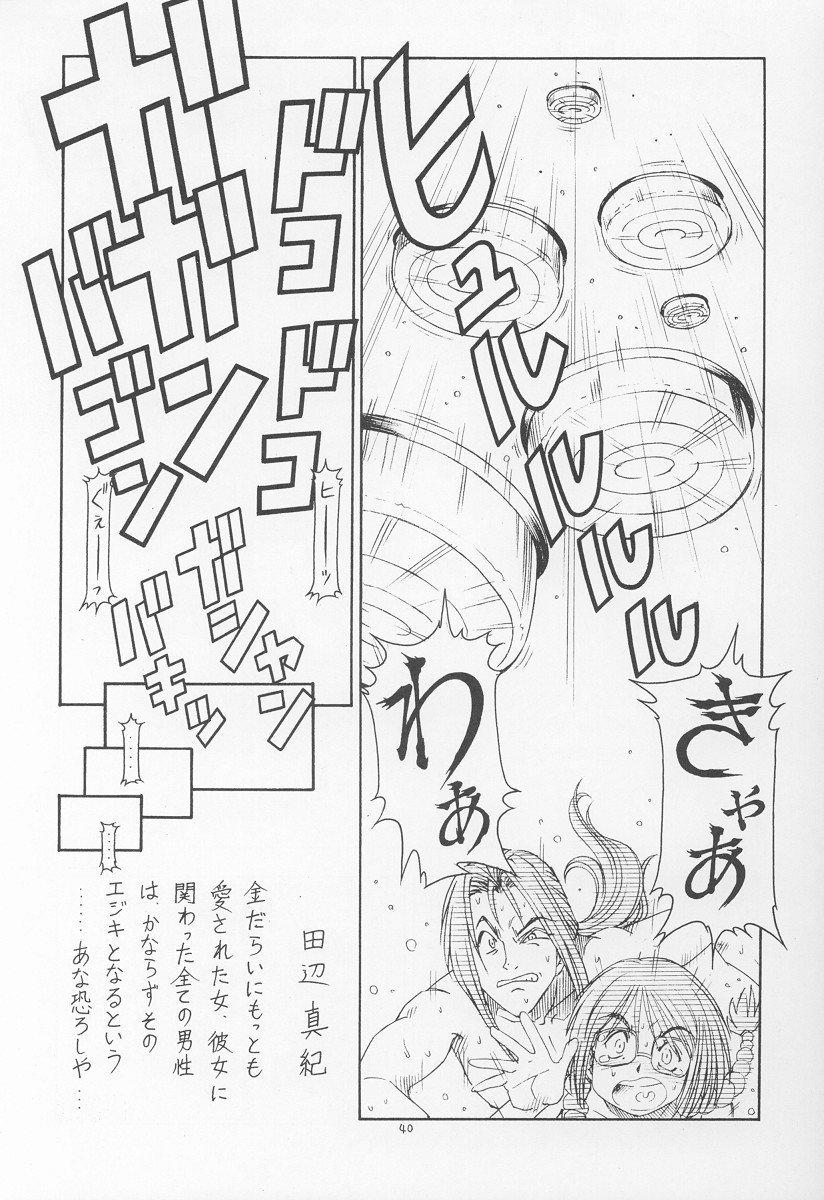 ヒュルルルルル
きゃあ
わぁ
ドコドコ
ガガン
バゴン
ヒーッ
ぐぇーっ
ガシャン
バキッ
……
……
田辺真紀
金だらいにもっとも
愛された女、彼女に
関わった全ての男性
は、かならずその
エジキとなるという
……あな恐ろしや…
40